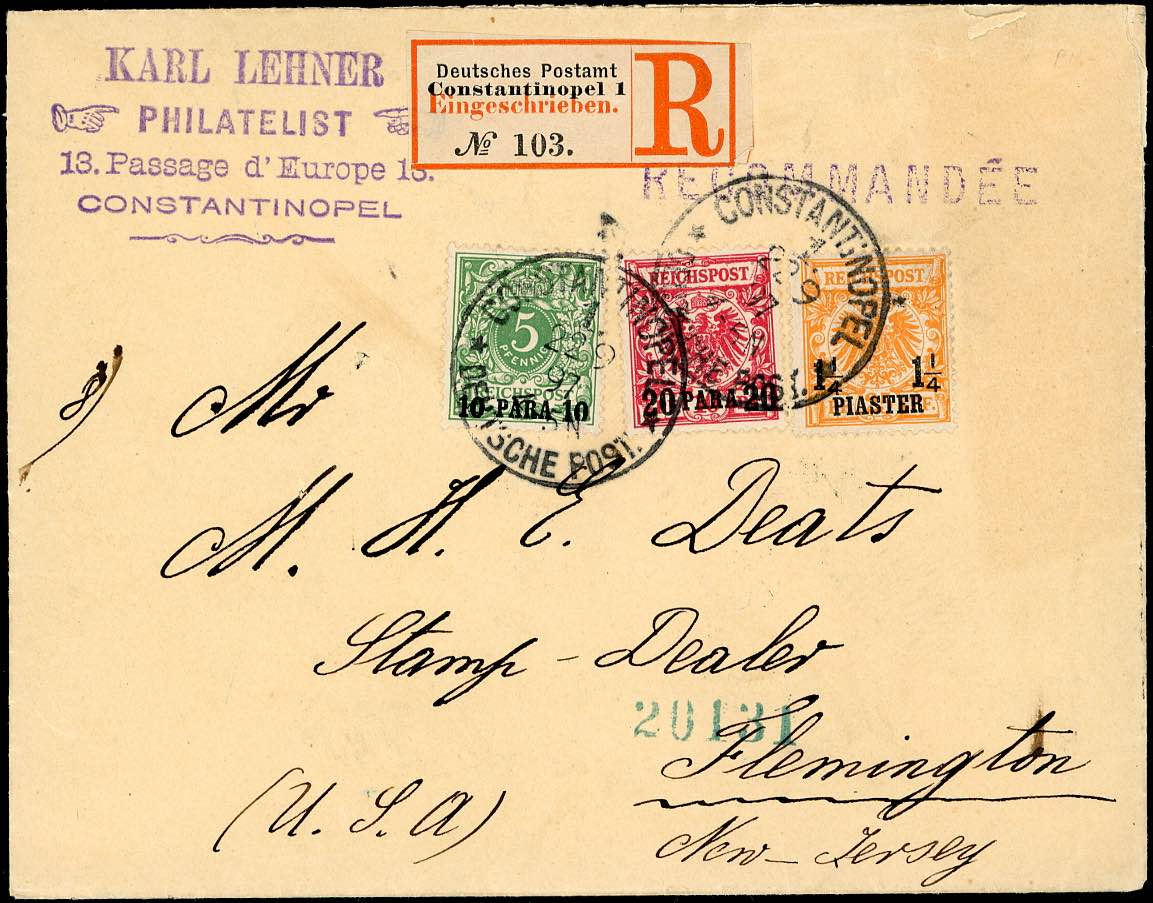 KARL LEHNER
PHILATELIST
13. Passage d'Europe 13.
CONSTANTINOPEL
Deutsches Postamt
Constantinopel 1
Eingeschrieben.
№ 103.
R
RECOMMANDÉE
CONSTANTINOPEL
DEUTSCHE POST.
CONSTANTINOPEL
5
PFENNIG
REICHSPOST
10 PARA 10
REICHSPOST
20 PARA 20
REICHSPOST
1 1/4 1 1/4
PIASTER
Mr
M. H. E. Deats
Stamp - Dealer
20131
Flemington
(U. S. A)
New-Jersey